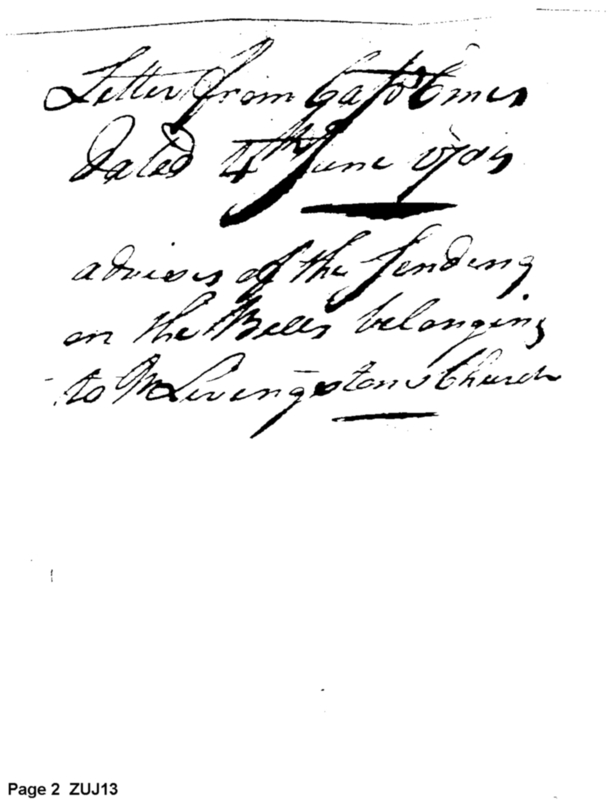 Letter from Capt Emes
dated 4th June 1784
advises of the Sending
on the Bells belonging
to Mr Livingstons Church
Page 2 ZUJ13